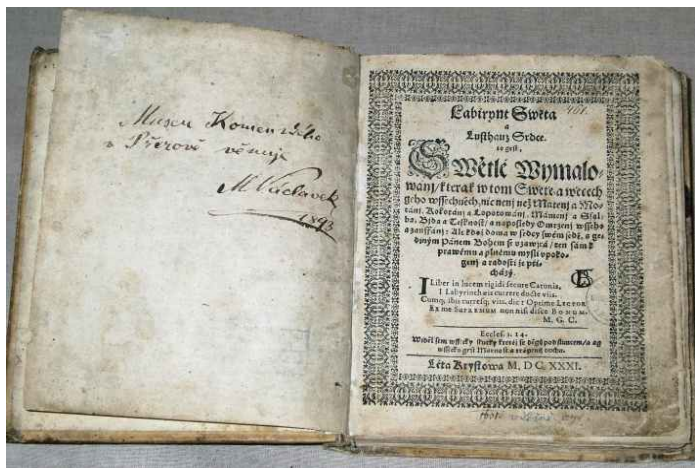 Museu Komenského
v Přerově věnuje
M Václavek
1893
401.
Labirynt Swěta
a
Lusthauz Srdce.
to gest,
SWětlé Wymalo-
wánj / kterak w tom Swětě a wěcech
geho wssechněch, nic nenj než Matenj a Mo-
tánj, Kolotánj a Lopotowánj, Mámenj a Ssal-
ba, Bjda a Tesknost / a naposledy Omrzenj wsseho
a zauffánj: Ale kdož doma w srdcy swém sedě, s ge-
diným Pánem Bohem se uzawjrá / ten sám k
prawému a plnému mysli vpoko-
genj a radosti že při-
cházý.
I Liber in lucem rigidi secure Catonis,
I Labyrinthæis currere docte viis.
Cumq; ibis curresq; viis, dic: Optime LECTOR
Ex me SUPREMUM non nisi disce BONUM.
M. G. C.
Eccles. 1. 14.
Widěl sem wssecky skutky kteréž se děgj pod sluncem / a ag
wssecko gest Marnost a trápenj ducha.
Léta Krystowa M. DC XXXI.